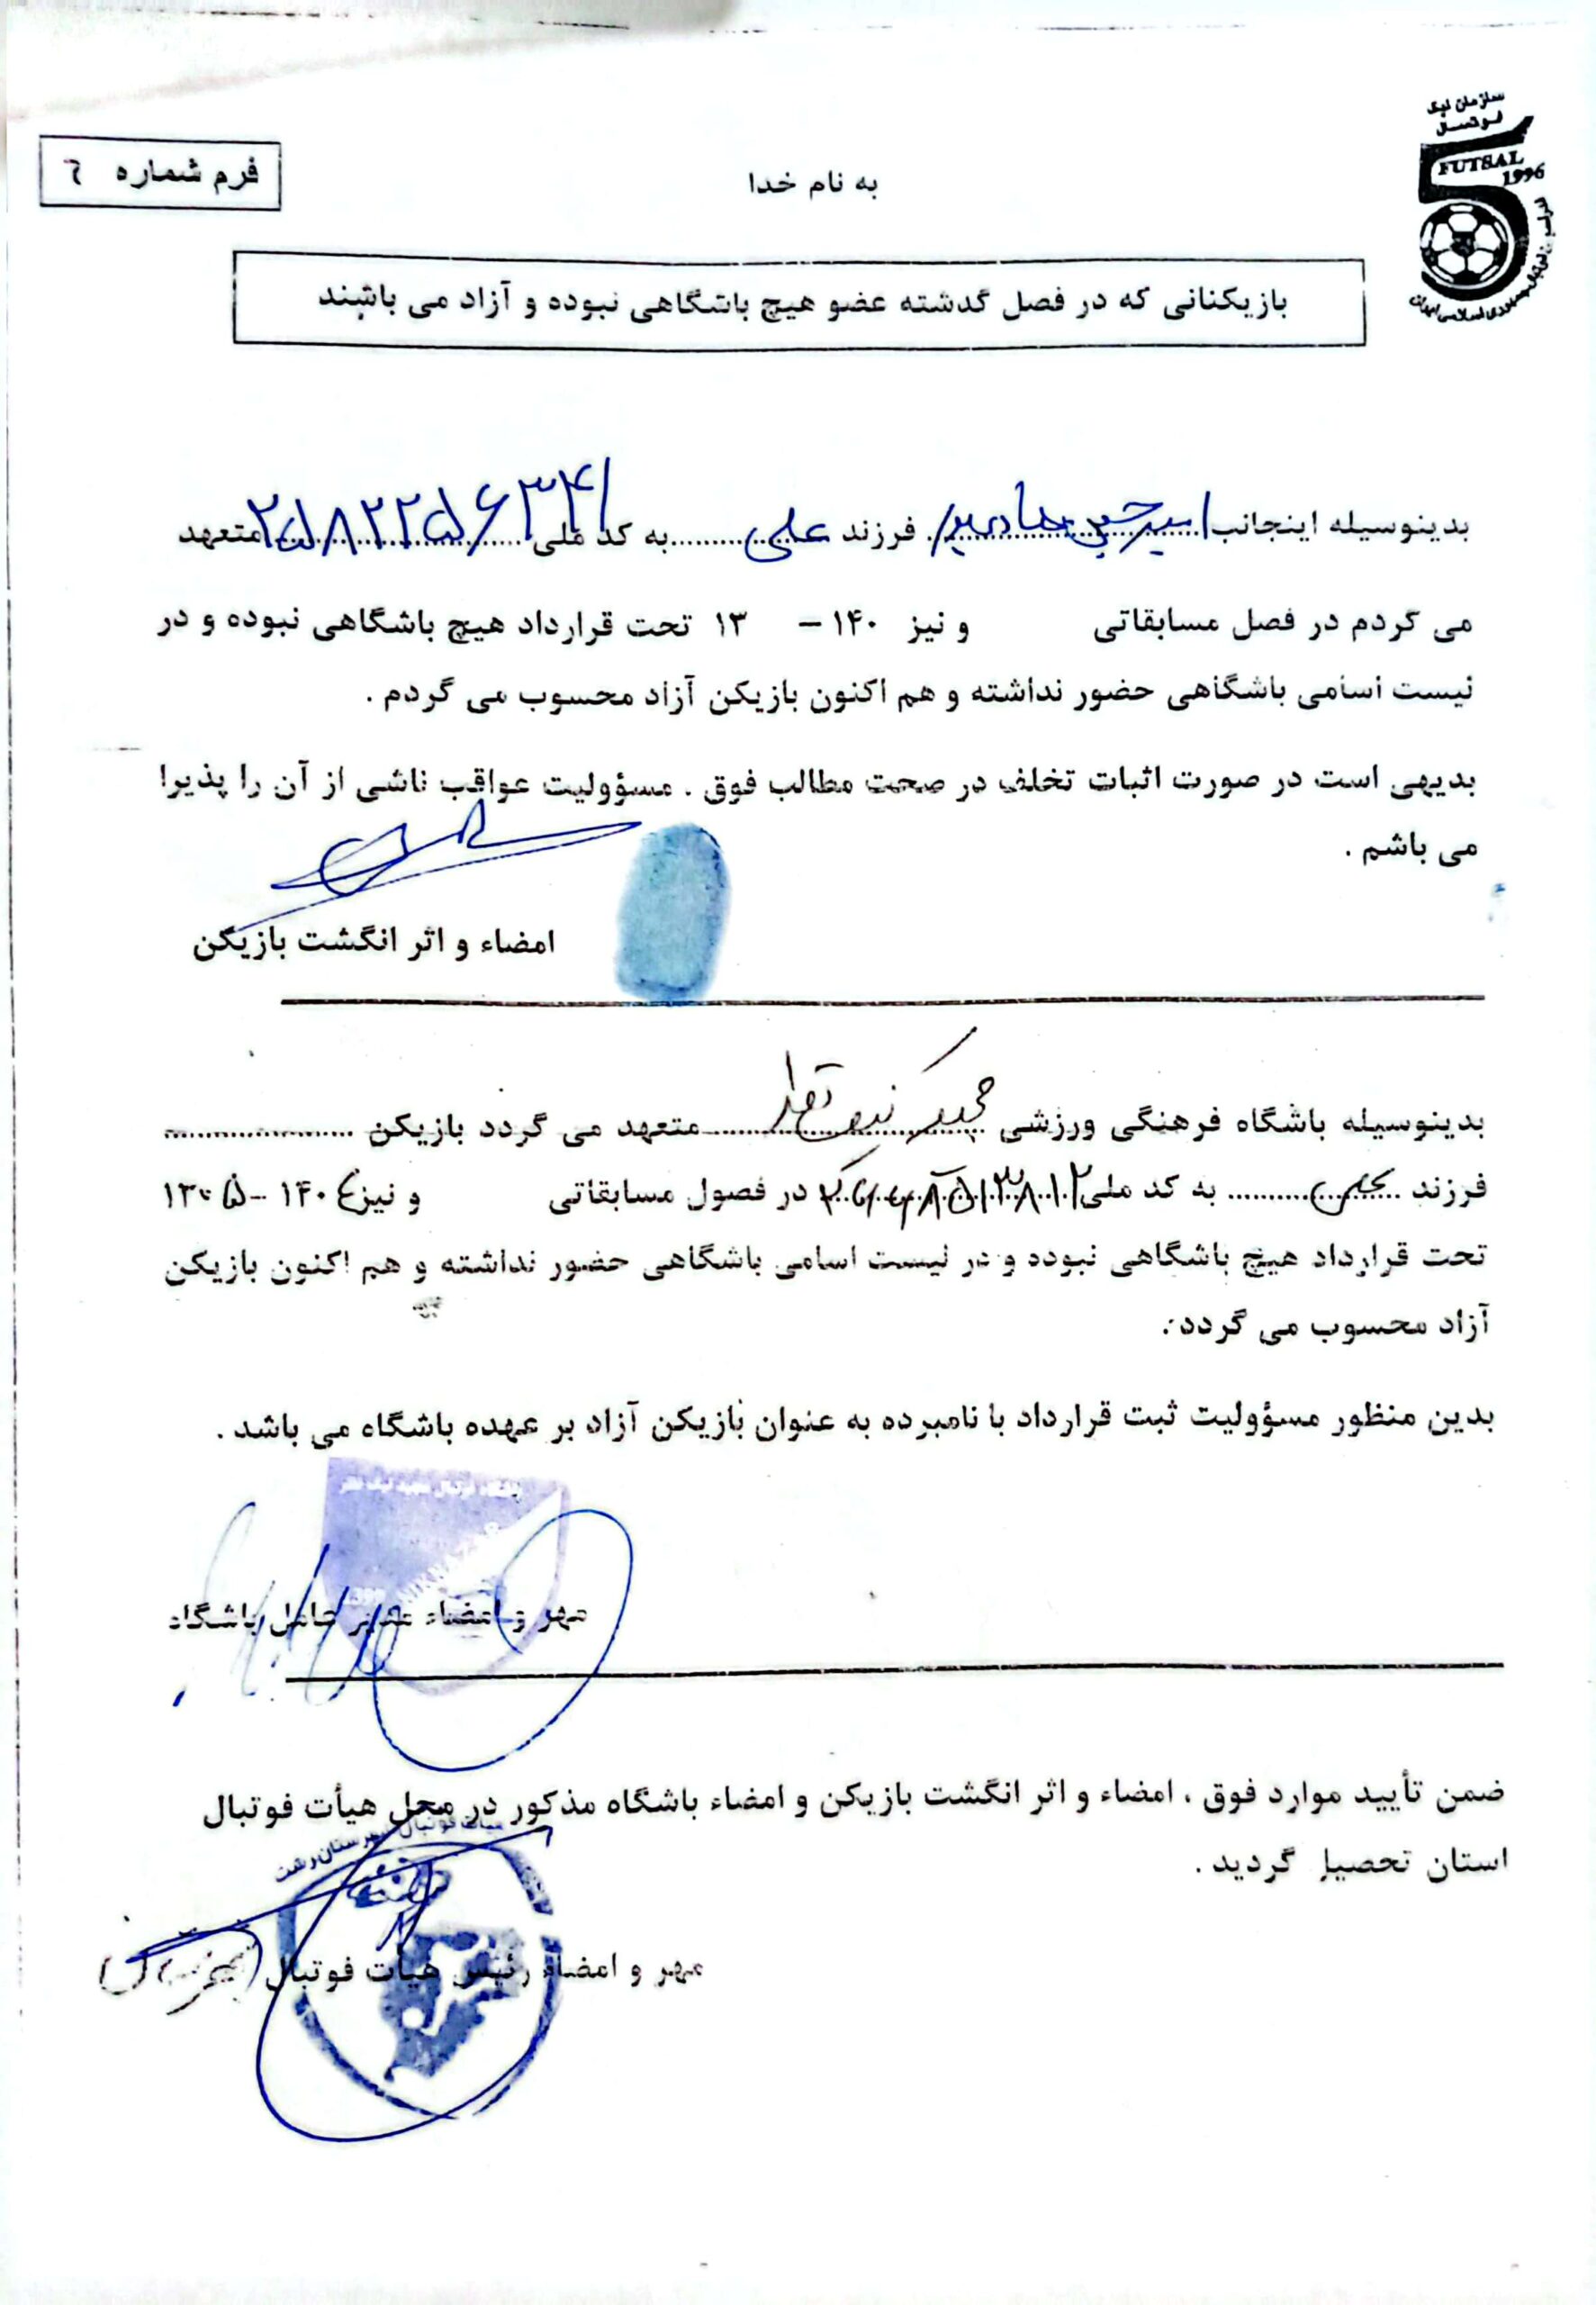 سازمان لیگ
فوتسال
FUTSAL
1996
فدراسیون فوتبال جمهوری اسلامی ایران
فرم شماره ٦
به نام خدا
بازیکنانی که در فصل گذشته عضو هیچ باشگاهی نبوده و آزاد می باشند
بدینوسیله اینجانب امیرحسین فرزند علی به کد ملی ۲۵۸۲۲۵۶۳۴۱ متعهد
می گردم در فصل مسابقاتی و نیز ۱۴۰ - ۱۳ تحت قرارداد هیچ باشگاهی نبوده و در
لیست اسامی باشگاهی حضور نداشته و هم اکنون بازیکن آزاد محسوب می گردم .
بدیهی است در صورت اثبات تخلف در صحت مطالب فوق . مسؤولیت عواقب ناشی از آن را پذیرا
می باشم .
امضاء و اثر انگشت بازیکن
بدینوسیله باشگاه فرهنگی ورزشی مجید نیک نظر متعهد می گردد بازیکن ....................
فرزند به کد ملی در فصول مسابقاتی و نیز ۱۴۰۴ - ۱۳۰۵
تحت قرارداد هیچ باشگاهی نبوده و در لیست اسامی باشگاهی حضور نداشته و هم اکنون بازیکن
آزاد محسوب می گردد .
بدین منظور مسؤولیت ثبت قرارداد با نامبرده به عنوان بازیکن آزاد بر عهده باشگاه می باشد .
باشگاه فوتبال مجید نیک نظر
NIKNAZAR
مهر و امضاء مدیر عامل باشگاه
ضمن تأیید موارد فوق ، امضاء و اثر انگشت بازیکن و امضاء باشگاه مذکور در محل هیأت فوتبال
استان تحصیل گردید .
هیات فوتبال شهرستان رشت
مهر و امضاء رئیس هیأت فوتبال